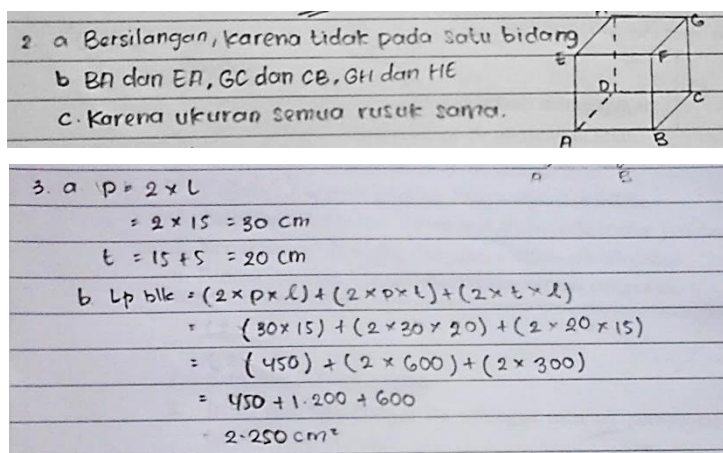 2. a Bersilangan, karena tidak pada satu bidang
b BA dan EA, GC dan CB, GH dan HE
c. Karena ukuran semua rusuk sama.
H G
E F
D C
A B
3. a p = 2 x l
= 2 x 15 = 30 cm
t = 15 + 5 = 20 cm
b. Lp blk = (2 x p x l) + (2 x p x t) + (2 x t x l)
= (30 x 15) + (2 x 30 x 20) + (2 x 20 x 15)
= (450) + (2 x 600) + (2 x 300)
= 450 + 1.200 + 600
2.250 cm²